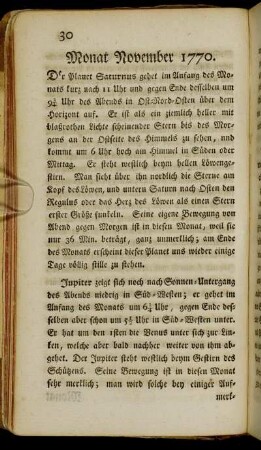 30
Monat November 1770.
Der Planet Saturnus gehet im Anfang des Mo-
nats kurz nach 11 Uhr und gegen Ende desselben um
9¼ Uhr des Abends in Ost-Nord-Osten über dem
Horizont auf. Er ist als ein ziemlich heller mit
blaßrothen Lichte scheinender Stern bis des Mor-
gens an der Ostseite des Himmels zu sehen, und
kommt um 6 Uhr hoch am Himmel in Süden oder
Mittag. Er steht westlich beym hellen Löwenge-
stirn. Man sieht über ihn nordlich die Sterne am
Kopf des Löwen, und unterm Saturn nach Osten den
Regulus oder das Herz des Löwen als einen Stern
erster Größe funkeln. Seine eigene Bewegung von
Abend gegen Morgen ist in diesen Monat, weil sie
nur 36 Min. beträgt, ganz unmerklich; am Ende
des Monats erscheint dieser Planet uns wieder einige
Tage völlig stille zu stehen.
Jupiter zeigt sich noch nach Sonnen-Untergang
des Abends niedrig in Süd-Westen; er gehet im
Anfang des Monats um 6¼ Uhr, gegen Ende des-
selben aber schon um 5¼ Uhr in Süd-Westen unter.
Er hat um den 1sten die Venus unter sich zur Lin-
ken, welche aber bald nachher weiter von ihm ab-
gehet. Der Jupiter steht westlich beym Gestirn des
Schützens. Seine Bewegung ist in diesen Monat
sehr merklich; man wird solche bey einiger Auf-
merk-